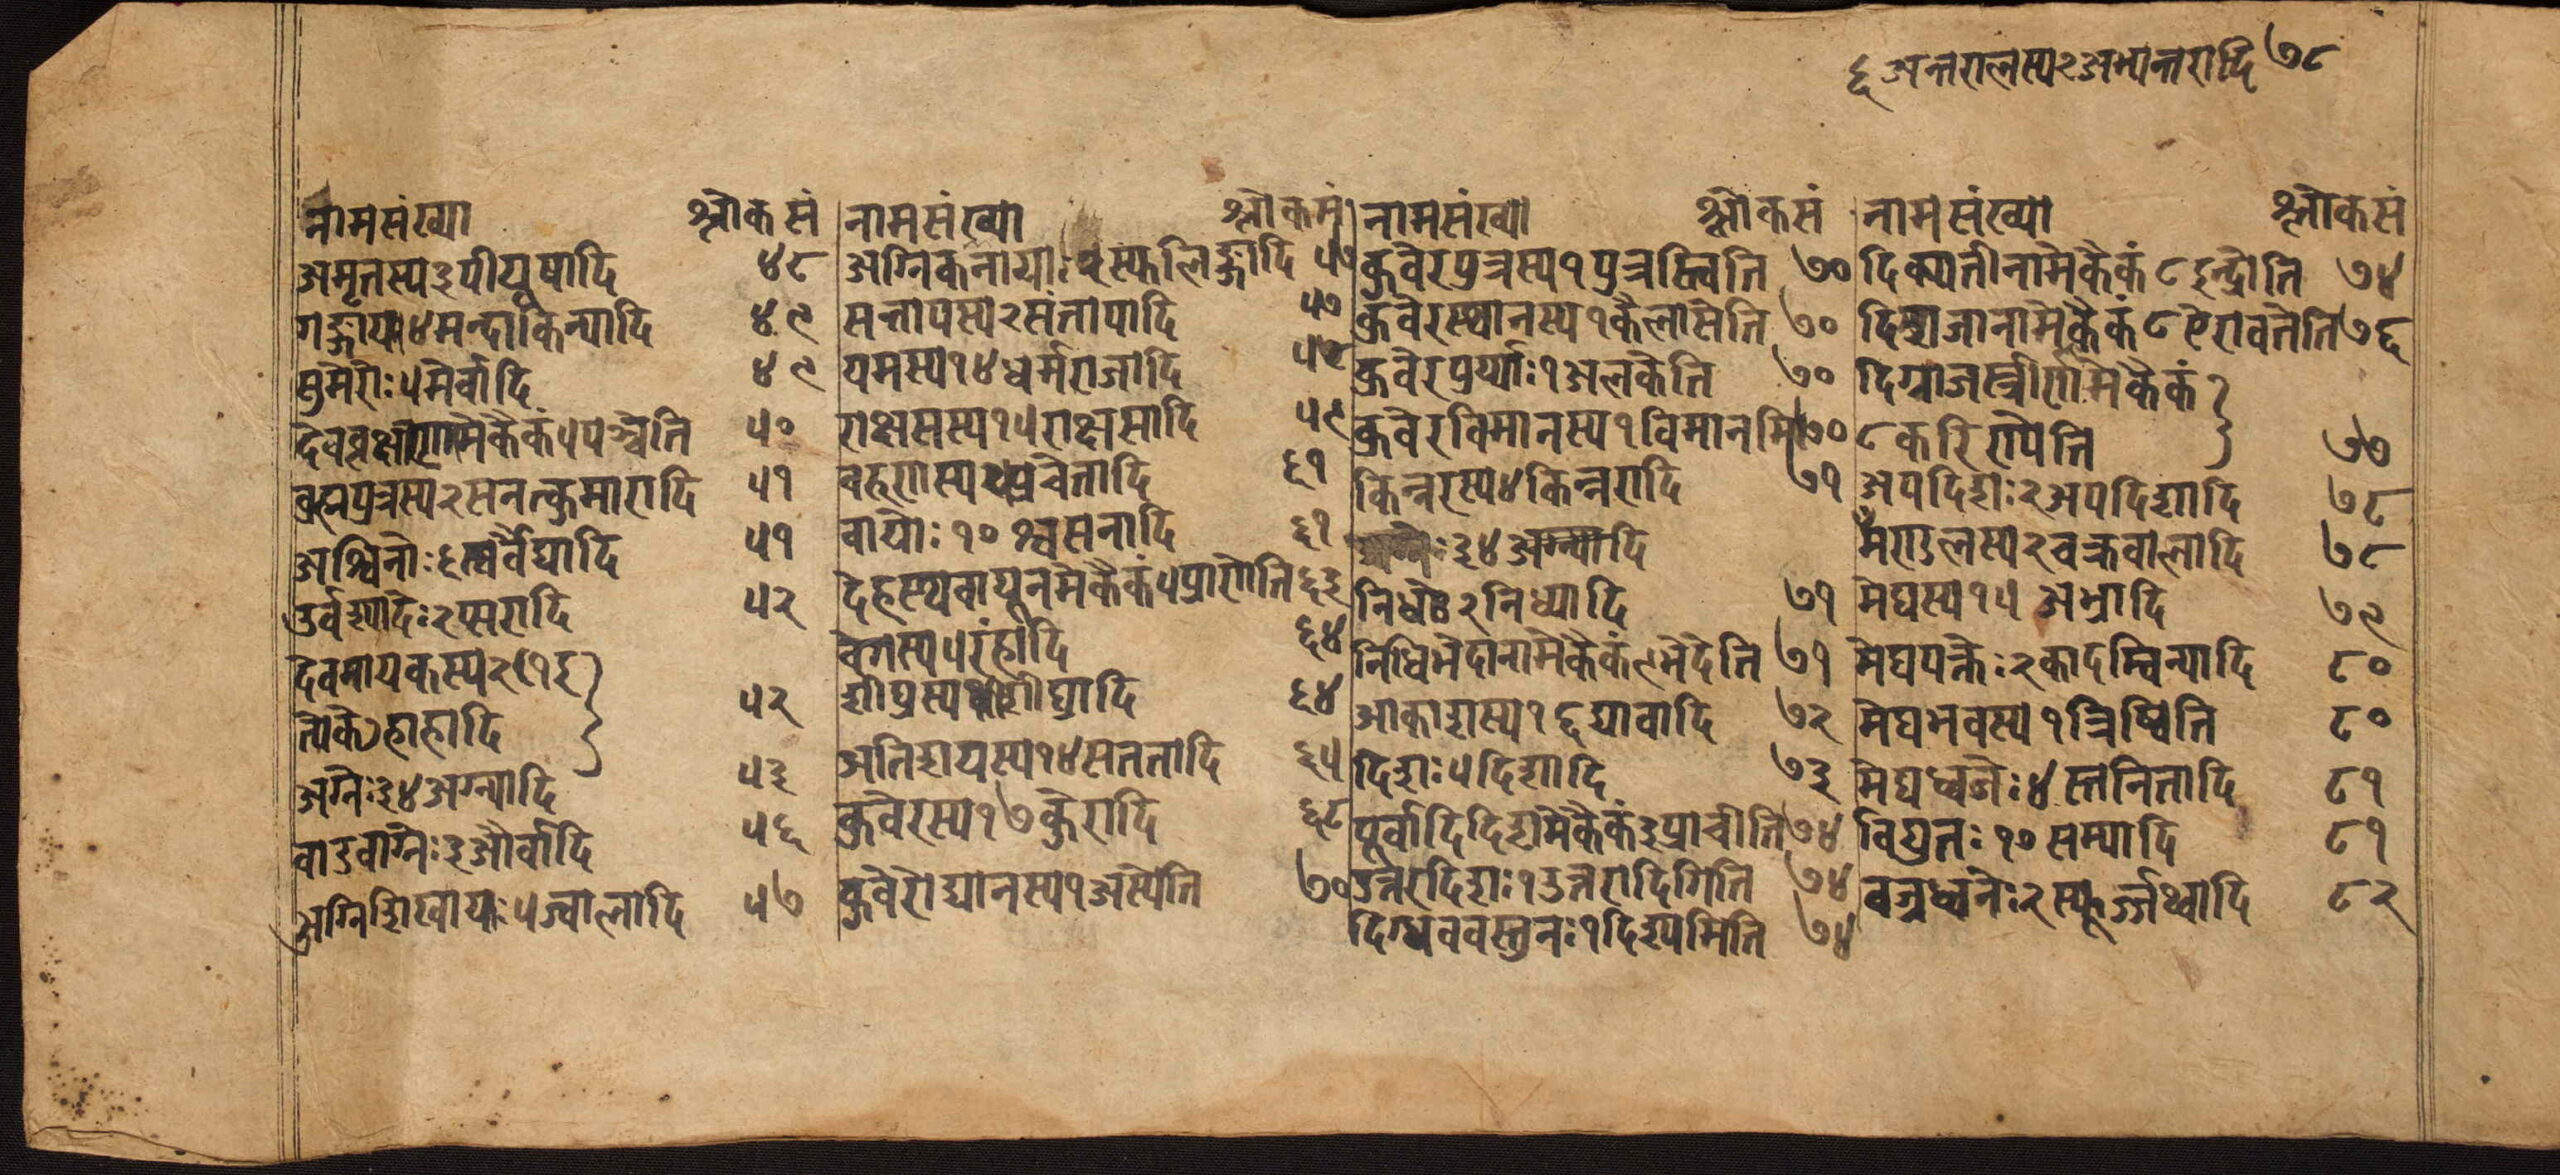 ६ अन्तरालस्य २ अभ्यन्तरादि ७८
नामसंख्या श्लोकसं
अमृतस्य ३ पीयूषादि ४८
गङ्गायाः ४ मन्दाकिन्यादि ४९
सुमेरोः ५ मेर्वादि ४९
देववृक्षाणामेकैकं ५ पञ्चेति ५०
ब्रह्मपुत्रस्य २ सनत्कुमारादि ५१
अश्विनोः ६ स्वर्वैद्यादि ५१
उर्वश्यादेः २ प्सरादि ५२
देवगायकस्य २ (१ इ
त्येके) हाहादि ५२
अग्नेः ३४ अग्न्यादि ५३
वाडवाग्नेः ३ और्वादि ५६
अग्निशिखायाः ५ ज्वालादि ५७
नामसंख्या श्लोकसं
अग्निकणायाः २ स्फुलिङ्गादि ५७
सन्तापस्य २ संतापादि ५७
यमस्य १४ धर्मराजादि ५८
राक्षसस्य १५ राक्षसादि ५९
वरुणस्य ५ प्रचेतादि ६१
वायोः १० श्वसनादि ६१
देहस्थवायूनमेकैकं ५ प्राणेति ६३
वेगस्य ५ रंहादि ६४
शीघ्रस्य शीघ्रादि ६४
अतिशयस्य १४ सततादि ६५
कुवेरस्य १७ कुेरादि ६८
कुवेरोद्यानस्य १ अस्येति ७०
नामसंख्या श्लोकसं
कुवेरपुत्रस्य १ पुत्रस्त्विति ७०
कुवेरस्थानस्य १ कैलासेति ७०
कुवेरपुर्य्याः १ अलकेति ७०
कुवेरविमानस्य १ विमानमि ७०
किन्नरस्य ४ किन्नरादि ७१
अग्नेः ३४ अग्न्यादि
निधेः २ निध्यादि ७१
निधिभेदानामेकैकं ९ भेदेति ७१
आकाशस्य १६ द्यावादि ७२
दिशः ५ दिशादि ७३
पूर्वादिदिशामेकैकं ३ प्राचीति ७४
उत्तरदिशः १ उत्तरादिगिति ७४
दिग्भववस्तुनः १ दिश्यमिति ७४
नामसंख्या श्लोकसं
दिक्पतीनामेकैकं ८ इन्द्रेति ७४
दिग्गजानामेकैकं ८ ऐरावतेति ७६
दिग्गजस्त्रीणामेकैकं
८ करिण्येति ७७
अपदिशः २ अपदिशादि ७८
मण्डलस्य २ चक्रवालादि ७८
मेघस्य १५ अभ्रादि ७९
मेघपङ्क्तेः २ कादम्बिन्यादि ८०
मेघभवस्य १ त्रिष्विति ८०
मेघध्वनेः ४ स्तनितादि ८१
विद्युतः १० सम्पादि ८१
वज्रध्वनेः २ स्फूर्ज्जथ्वादि ८२